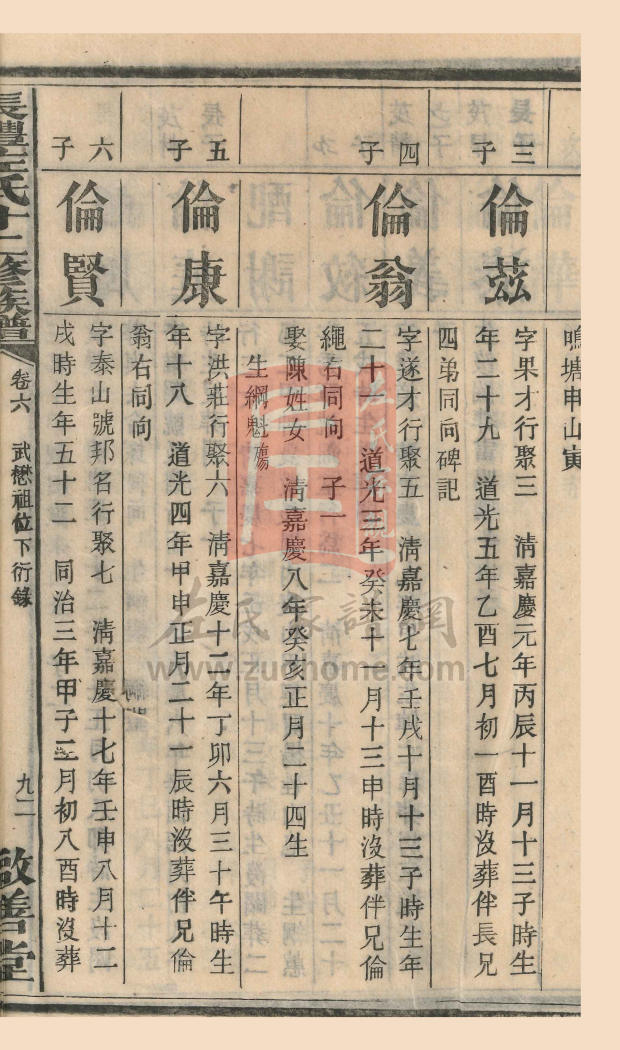 鳴塘申山寅
三子
倫茲
字果才行聚三　清嘉慶元年丙辰十一月十三子時生
年二十九　道光五年乙酉七月初一酉時沒葬伴長兄
四弟同向碑記
四子
倫翁
字遂才行聚五　清嘉慶七年壬戌十月十三子時生年
二十一　道光三年癸未十一月十三申時沒葬伴兄倫
繩右同向　子一
娶陳姓女　清嘉慶八年癸亥正月二十四生
生綱魁殤
五子
倫康
字洪莊行聚六　清嘉慶十二年丁卯六月三十午時生
年十八　道光四年甲申正月二十一辰時沒葬伴兄倫
翁右同向
六子
倫賢
字泰山號邦名行聚七　清嘉慶十七年壬申八月十二
戌時生年五十二　同治三年甲子二月初八酉時沒葬
長澧左氏十二修族譜
卷六　武懋祖位下衍錄
九二
啟善堂
左氏家譜網
www.zuohome.com